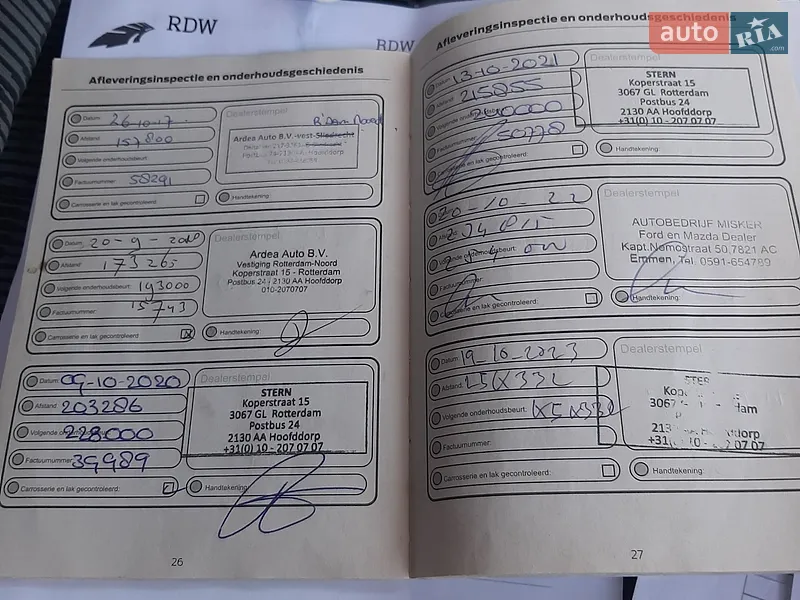 RDW
RDW
auto RIA.com
Afleveringsinspectie en onderhoudsgeschiedenis
Datum: 26-10-17
Afstand: 157800
Volgende onderhoudsbeurt:
Factuurnummer: 58291
Carrosserie en lak gecontroleerd:
Dealerstempel
R'dam Noord
Ardea Auto B.V.-vest-Sliedrecht
Handtekening:
Datum: 20-9-2018
Afstand: 173265
Volgende onderhoudsbeurt: 193000
Factuurnummer: 15743
Carrosserie en lak gecontroleerd:
Dealerstempel
Ardea Auto B.V.
Vestiging Rotterdam-Noord
Koperstraat 15 - Rotterdam
Postbus 24 2130 AA Hoofddorp
010-2070707
Handtekening:
Datum: 09-10-2020
Afstand: 203286
Volgende onderhoudsbeurt: 228000
Factuurnummer: 39989
Carrosserie en lak gecontroleerd:
Dealerstempel
STERN
Koperstraat 15
3067 GL Rotterdam
Postbus 24
2130 AA Hoofddorp
+31(0)10 - 207 07 07
Handtekening:
26
Afleveringsinspectie en onderhoudsgeschiedenis
Datum: 13-10-2021
Afstand: 215855
Volgende onderhoudsbeurt: 240000
Factuurnummer: 50778
Carrosserie en lak gecontroleerd:
Dealerstempel
STERN
Koperstraat 15
3067 GL Rotterdam
Postbus 24
2130 AA Hoofddorp
+31(0)10 - 207 07 07
Handtekening:
Datum: 20-10-22
Afstand:
Volgende onderhoudsbeurt:
Factuurnummer:
Carrosserie en lak gecontroleerd:
Dealerstempel
AUTOBEDRIJF MISKER
Ford en Mazda Dealer
Kapt.Nemostraat 50,7821 AC
Emmen, Tel. 0591-654789
Handtekening:
Datum: 19-10-2023
Afstand:
Volgende onderhoudsbeurt:
Factuurnummer:
Carrosserie en lak gecontroleerd:
Dealerstempel
Handtekening:
27